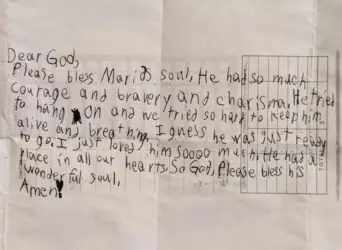 Dear God,
Please bless Marios soul, He had so much
courage and bravery and charisma, He tried
to hang on and we tried so hard to keep him
alive and breathing, I guess he was just ready
to go. I just loved him soooo much. He had a
place in all our hearts. So God, Please bless his
wonderful soul,
Amen!